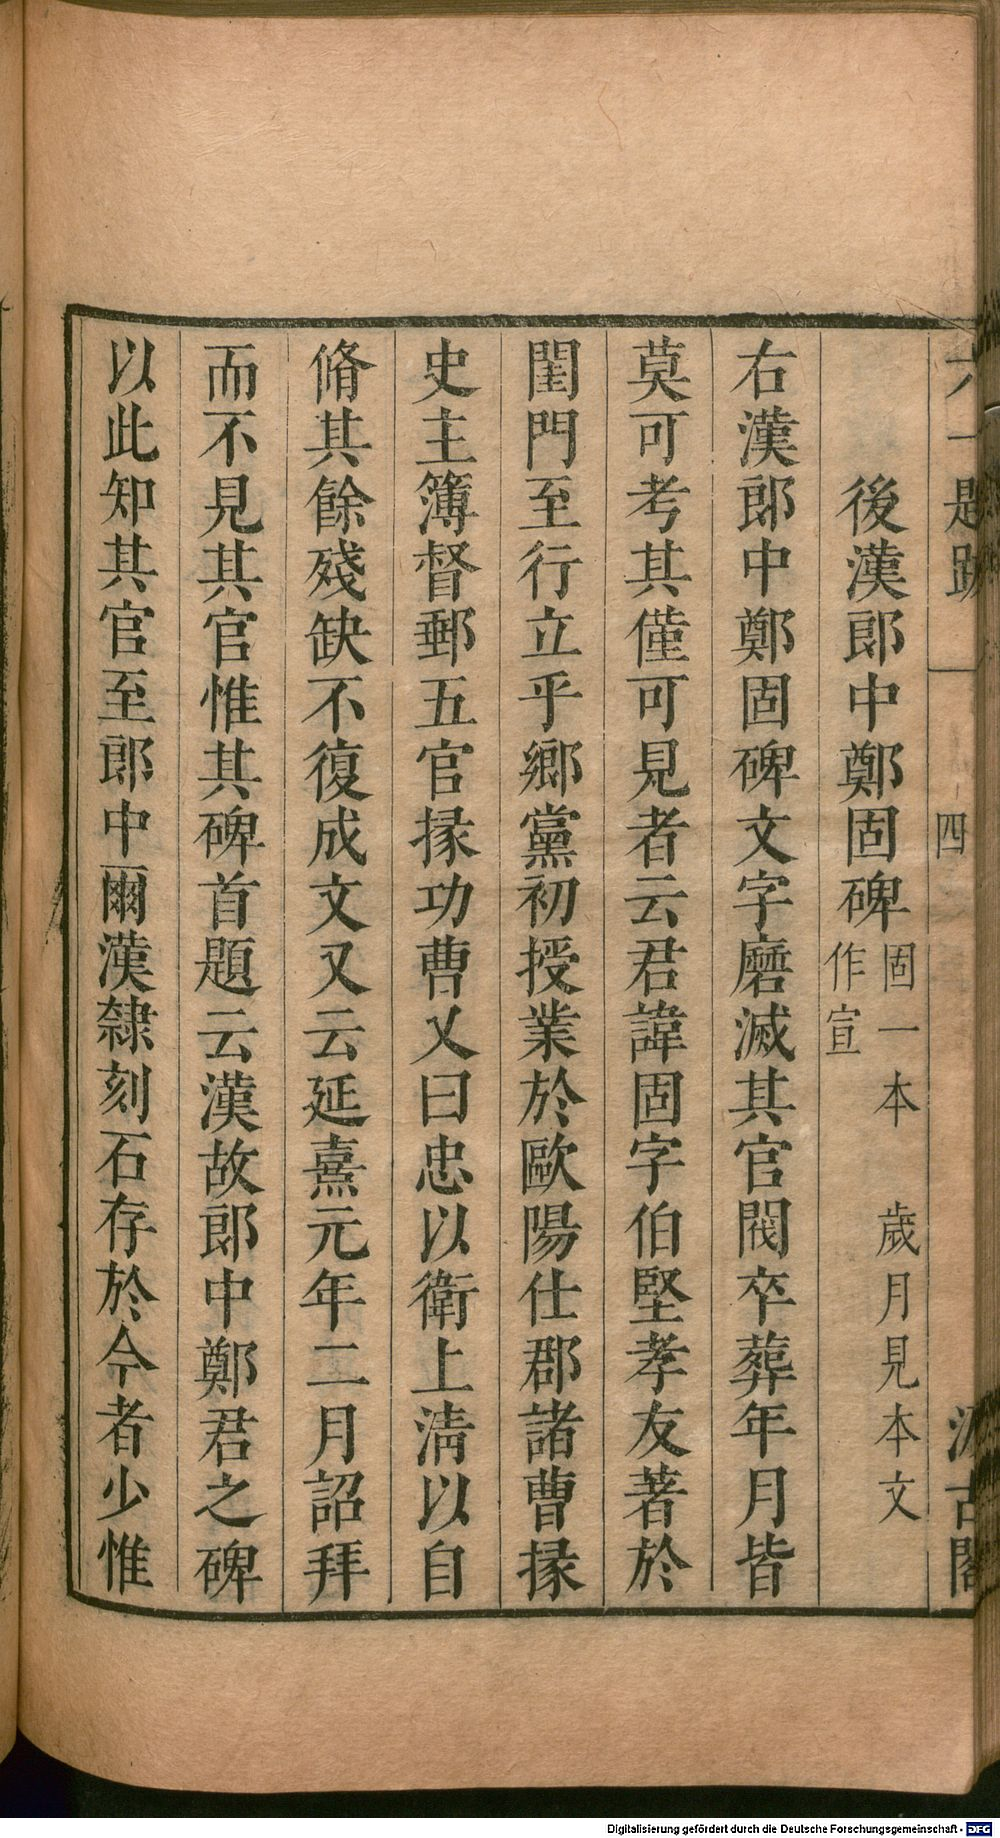 六一題跋 一 四 汲古閣
後漢郎中鄭固碑 固一本作宣 歲月見本文
右漢郎中鄭固碑文字磨滅其官閥卒葬年月皆
莫可考其僅可見者云君諱固字伯堅孝友著於
閨門至行立乎鄉黨初授業於歐陽仕郡諸曹掾
史主簿督郵五官掾功曹又曰忠以衛上淸以自
脩其餘殘缺不復成文又云延熹元年二月詔拜
而不見其官惟其碑首題云漢故郎中鄭君之碑
以此知其官至郎中爾漢隸刻石存於今者少惟
Digitalisierung gefördert durch die Deutsche Forschungsgemeinschaft - DFG